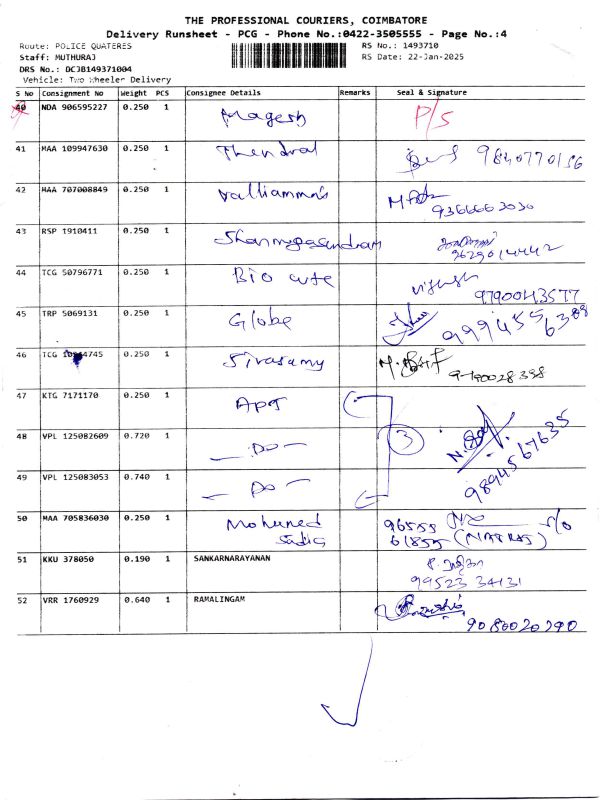 THE PROFESSIONAL COURIERS, COIMBATORE
Delivery Runsheet - PCG - Phone No.:0422-3505555 - Page No.:4
Route: POLICE QUATERES RS No.: 1493710
Staff: MUTHURAJ RS Date: 22-Jan-2025
DRS No.: DCJB149371004
Vehicle: Two Wheeler Delivery
S No Consignment No Weight PCS Consignee Details Remarks Seal & Signature
40 NDA 906595227 0.250 1 Magesh P/S
41 MAA 109947630 0.250 1 Thendral 9840770156
42 MAA 707008849 0.250 1 Valliammais 9366663030
43 RSP 1910411 0.250 1 Shanmugasundram 9629014442
44 TCG 50796771 0.250 1 Bio cute 9790043577
45 TRP 5069131 0.250 1 Globe 9994556388
46 TCG 0.250 1 Sivasamy
47 KTG 7171170 0.250 1 APT
48 VPL 125082609 0.720 1 - Do - 3
49 VPL 125083053 0.740 1 - Do - 9894567635
50 MAA 705836030 0.250 1 Mohumed 96555
Sadiq 61855 (NATRAJ)
51 KKU 378050 0.190 1 SANKARNARAYANAN
99523 34131
52 VRR 1760929 0.640 1 RAMALINGAM
9080020290